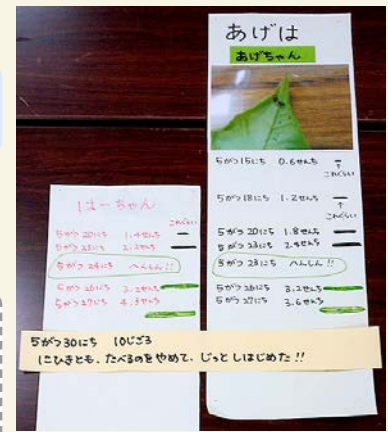 あげは
あげちゃん
5がつ15にち 0.6せんち
↑
これくらい
5がつ18にち 1.2せんち
↑
これくらい
5がつ20にち 1.8せんち
5がつ23にち 2.4せんち
5がつ23にち へんしん!!
5がつ26にち 3.2せんち
5がつ27にち 3.6せんち
はーちゃん
これくらい
5がつ20にち 1.4せんち
5がつ23にち
5がつ24にち へんしん!!
5がつ26にち 3.2せんち
5がつ27にち 4.3せんち
5がつ30にち 10じごろ
にひきとも、たべるのをやめて、じっとしはじめた!!